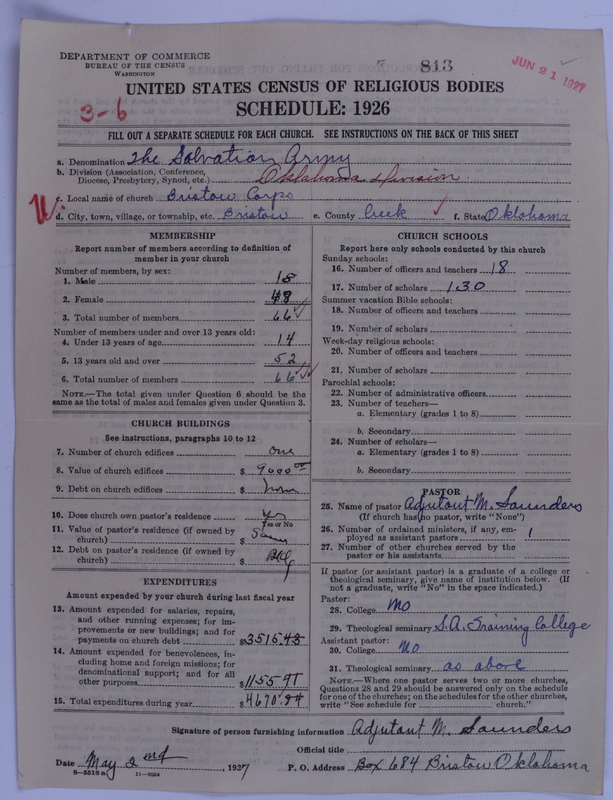 DEPARTMENT OF COMMERCE
BUREAU OF THE CENSUS
WASHINGTON
813
JUN 21 1927
UNITED STATES CENSUS OF RELIGIOUS BODIES
3-6
SCHEDULE: 1926
FILL OUT A SEPARATE SCHEDULE FOR EACH CHURCH. SEE INSTRUCTIONS ON THE BACK OF THIS SHEET
a. Denomination The Salvation Army
b. Division (Association, Conference, Diocese, Presbytery, Synod, etc.) Oklahoma Division
c. Local name of church Bristow Corps
d. City, town, village, or township, etc. Bristow e. County Creek f. State Oklahoma
MEMBERSHIP
Report number of members according to definition of
member in your church
Number of members, by sex:
1. Male 18
2. Female 48
3. Total number of members 66
Number of members under and over 13 years old:
4. Under 13 years of age 14
5. 13 years old and over 52
6. Total number of members 66
NOTE.—The total given under Question 6 should be
same as the total of males and females given under Question 3.
CHURCH BUILDINGS
See instructions, paragraphs 10 to 12
7. Number of church edifices one
8. Value of church edifices $ 9000
9. Debt on church edifices $
10. Does church own pastor's residence Yes
Yes or No
11. Value of pastor's residence (if owned by
church) $
12. Debt on pastor's residence (if owned by
church) $
EXPENDITURES
Amount expended by your church during last fiscal year
13. Amount expended for salaries, repairs,
and other running expenses; for im-
provements or new buildings; and for
payments on church debt $ 3515.43
14. Amount expended for benevolences, in-
cluding home and foreign missions; for
denominational support; and for all
other purposes $ 1155.41
15. Total expenditures during year $ 4670.84
CHURCH SCHOOLS
Report here only schools conducted by this church
Sunday schools:
16. Number of officers and teachers 18
17. Number of scholars 130
Summer vacation Bible schools:
18. Number of officers and teachers
19. Number of scholars
Week-day religious schools:
20. Number of officers and teachers
21. Number of scholars
Parochial schools:
22. Number of administrative officers
23. Number of teachers—
a. Elementary (grades 1 to 8)
b. Secondary
24. Number of scholars—
a. Elementary (grades 1 to 8)
b. Secondary
PASTOR
25. Name of pastor Adjutant M. Saunders
(If church has no pastor, write "None")
26. Number of ordained ministers, if any, em-
ployed as assistant pastors 1
27. Number of other churches served by the
pastor or his assistants
If pastor (or assistant pastor) is a graduate of a college or
theological seminary, give name of institution below. (If
not a graduate, write "No" in the space indicated.)
Pastor:
28. College No
29. Theological seminary S.A. Training College
Assistant pastor:
30. College No
31. Theological seminary as above
NOTE.—Where one pastor serves two or more churches,
Questions 28 and 29 should be answered only on the schedule
for one of the churches; on the schedules for the other churches,
write "See schedule for church."
Signature of person furnishing information Adjutant M. Saunders
Official title
Date May 2nd, 1927 P. O. Address Box 684 Bristow Oklahoma
8-5518a 11-9084